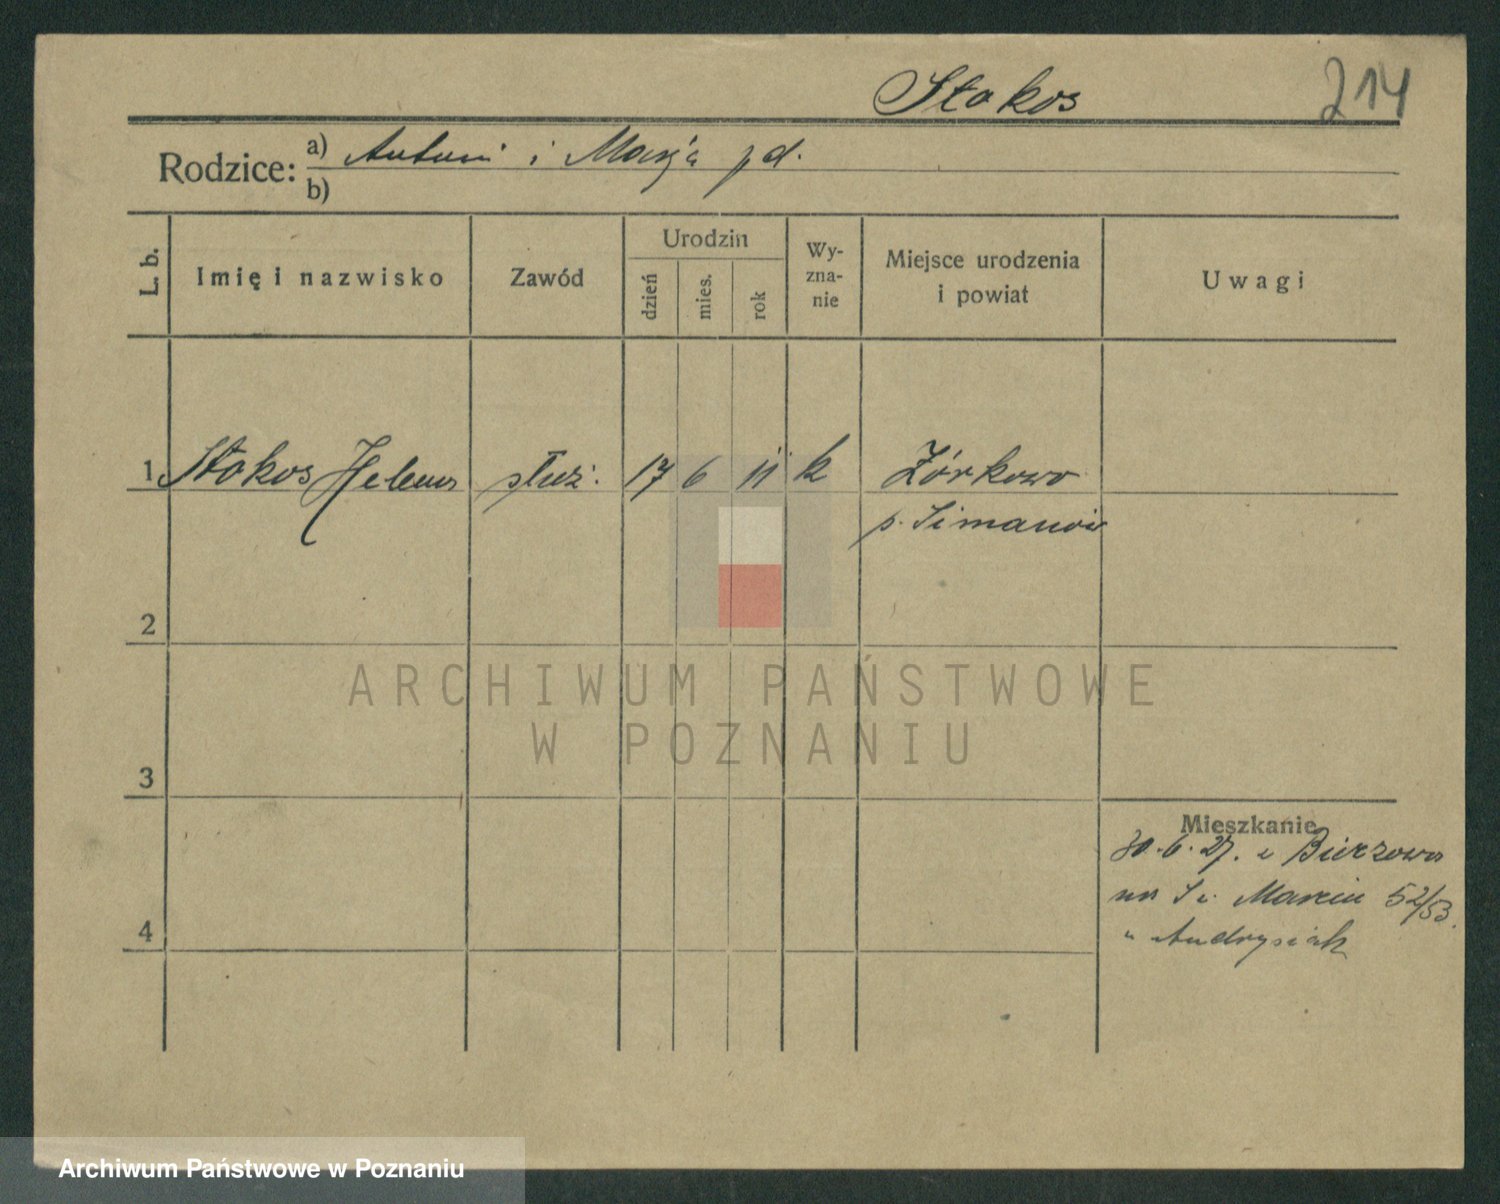 Stokos 214
Rodzice: a) Antoni i Marja pd.
b)
L. b. Imię i nazwisko Zawód Urodzin dzień mies. rok Wy-zna-nie Miejsce urodzenia i powiat Uwagi
1 Stokos Helena służ. 17 6 11 k Żórkowo
p. Simanow
2
ARCHIWUM PAŃSTWOWE
W POZNANIU
3
Mieszkanie
30.6.27. z Bierzowa
na Św. Marcin 52/53.
4 u Andrysiak
Archiwum Państwowe w Poznaniu